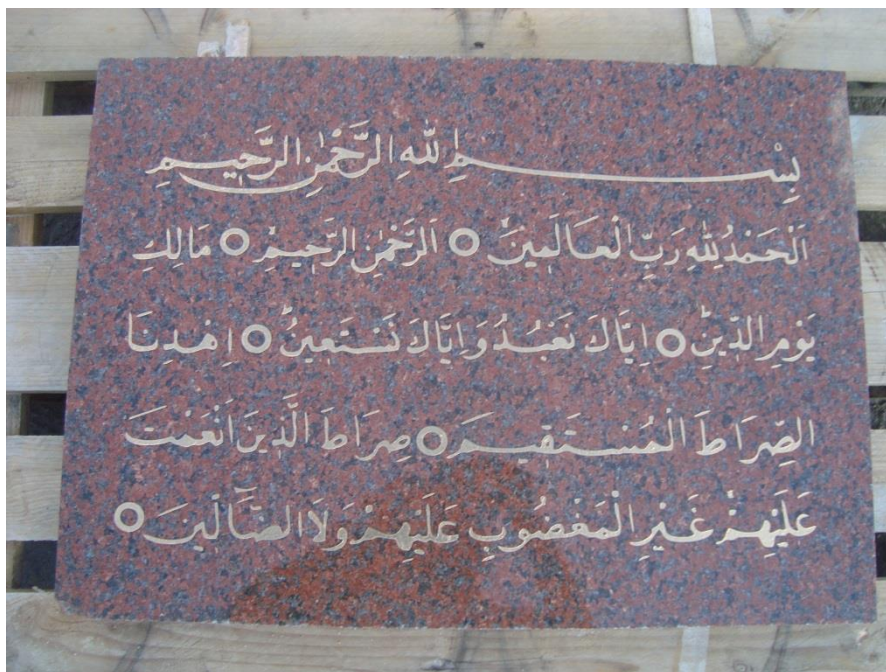 بِسْمِ اللهِ الرَّحْمٰنِ الرَّحِيمِ
اَلْحَمْدُ لِلّٰهِ رَبِّ الْعَالَمِينَ ○ اَلرَّحْمٰنِ الرَّحِيمِ ○ مَالِكِ
يَوْمِ الدِّينِ ○ اِيَّاكَ نَعْبُدُ وَاِيَّاكَ نَسْتَعِينُ ○ اِهْدِنَا
الصِّرَاطَ الْمُسْتَقِيمَ ○ صِرَاطَ الَّذِينَ اَنْعَمْتَ
عَلَيْهِمْ غَيْرِ الْمَغْضُوبِ عَلَيْهِمْ وَلَا الضَّٓالِّينَ ○